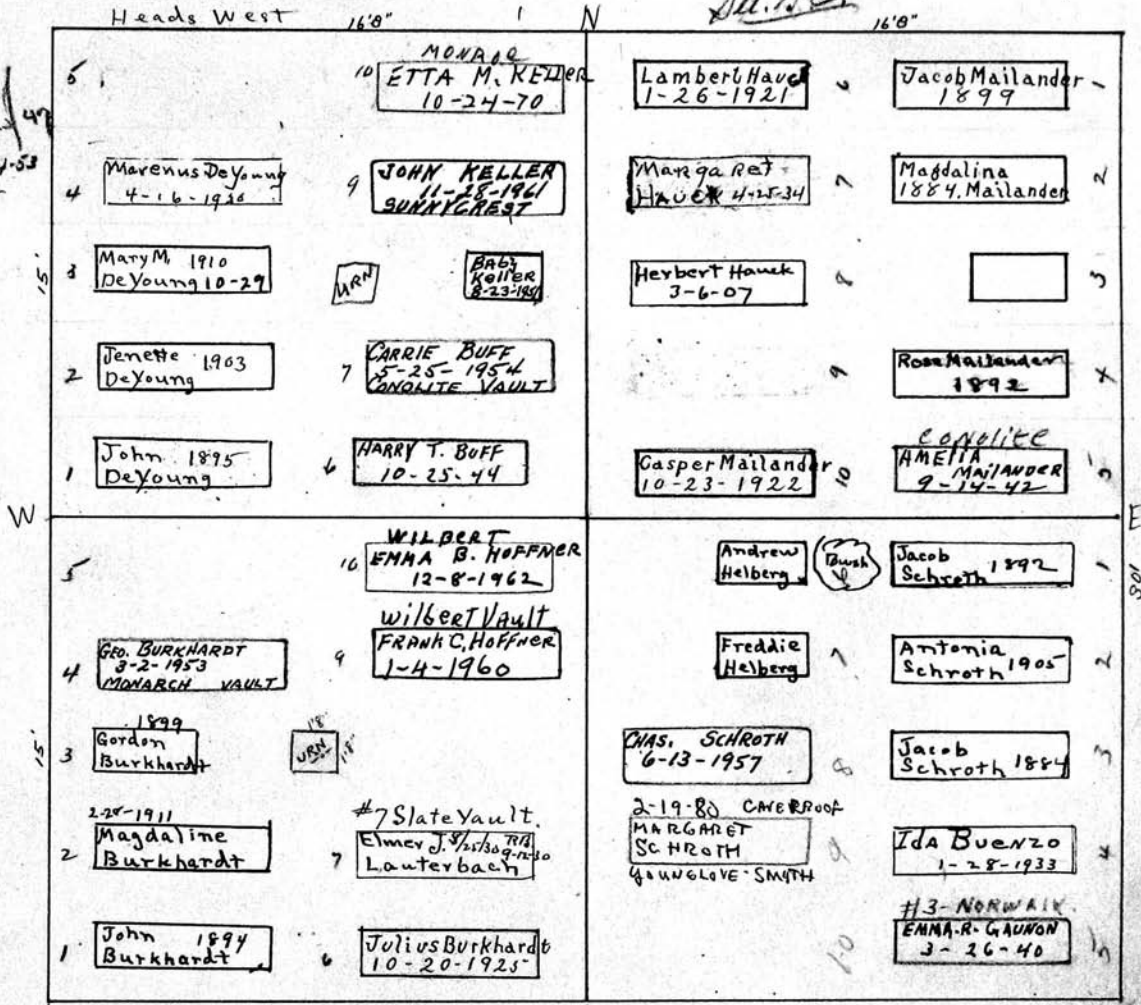 Heads West
16'8"
N
16'8"
5
MONROE
10
ETTA M. KELLER
10-24-70
Lambert Hauck
1-26-1921
6
Jacob Mailander
1899
1
4
Marenus DeYoung
9
JOHN KELLER
11-28-1961
SUNNYCREST
Margaret
HAUCK 4-25-34
7
Magdalina
1884. Mailander
2
15'
3
Mary M. 1910
DeYoung 10-29
URN
BABY
KELLER
Herbert Hauck
3-6-07
8
3
2
Jenette 1903
DeYoung
7
CARRIE BUFF
5-25-1954
CONOLITE VAULT
9
Rose Mailander
1892
4
1
John 1895
DeYoung
6
HARRY T. BUFF
10-25-44
Casper Mailander
10-23-1922
10
CONOLITE
AMELIA
MAILANDER
9-14-42
5
W
E
5
10
WILBERT
EMMA B. HOFFNER
12-8-1962
Andrew
Helberg
Bush
Jacob
Schroth 1892
1
4
GEO. BURKHARDT
3-2-1953
MONARCH VAULT
9
Wilbert Vault
FRANK C. HOFFNER
1-4-1960
Freddie
Helberg
7
Antonia
Schroth 1905
2
15'
3
1899
Gordon
Burkhardt
URN
18"
18"
CHAS. SCHROTH
6-13-1957
8
Jacob
Schroth 1884
3
2
Magdaline
Burkhardt
7
#7 Slate Vault.
Elmer J. 8/25/30
Lauterbach
2-19-80 CAVEPROOF
MARGARET
SCHROTH
YOUNGLOVE-SMYTH
9
Ida Buenzo
1-28-1933
4
1
John 1894
Burkhardt
6
Julius Burkhardt
10-20-1925
10
#3-NORWALK
EMMA-R-GAUNON
3-26-40
5